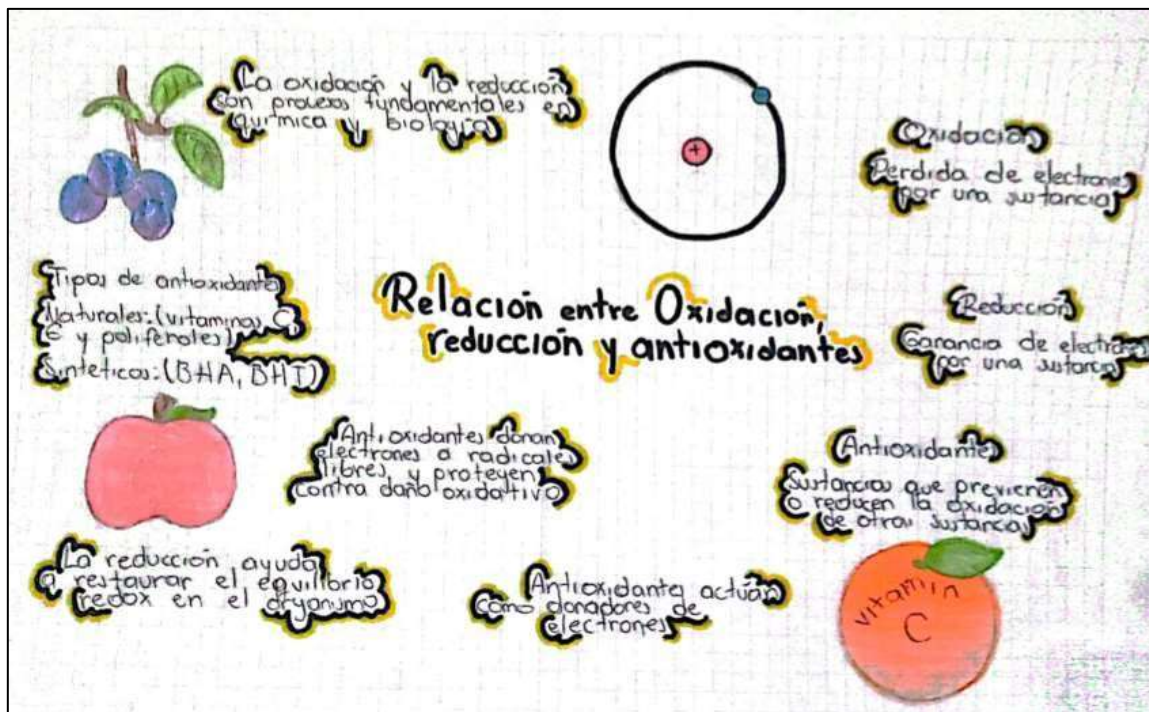 La oxidación y la reducción
son procesos fundamentales en
química y biología
+
Oxidación
Perdida de electrones
por una sustancia
Relación entre Oxidación,
reducción y antioxidantes
Tipos de antioxidantes
Naturales:(vitaminas C,
E y polifenoles)
Sintéticos:(BHA, BHT)
Reducción
Ganancia de electrones
por una sustancia
Antioxidantes donan
electrones a radicales
libres y protegen
contra daño oxidativo
Antioxidantes
Sustancias que previenen
o reducen la oxidación
de otras sustancias
La reducción ayuda
a restaurar el equilibrio
redox en el organismo
Antioxidantes actúan
como donadores de
electrones
vitamin
C